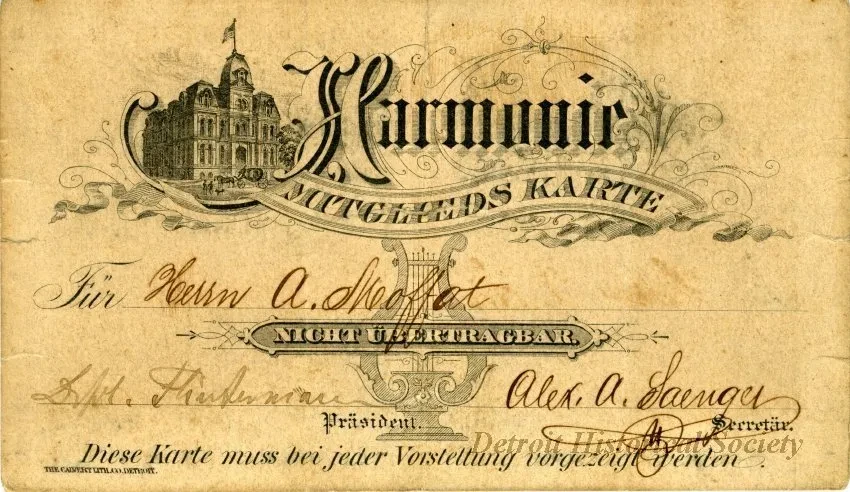 Harmonie
MITGLIEDS KARTE
Für Herrn A. Moffat
NICHT ÜBERTRAGBAR.
Flinterman Alex. A. Saenger
Präsident. Secretär.
Detroit Historical Society
Diese Karte muss bei jeder Vorstellung vorgezeigt werden.
THE CALVERT LITH. CO. DETROIT.